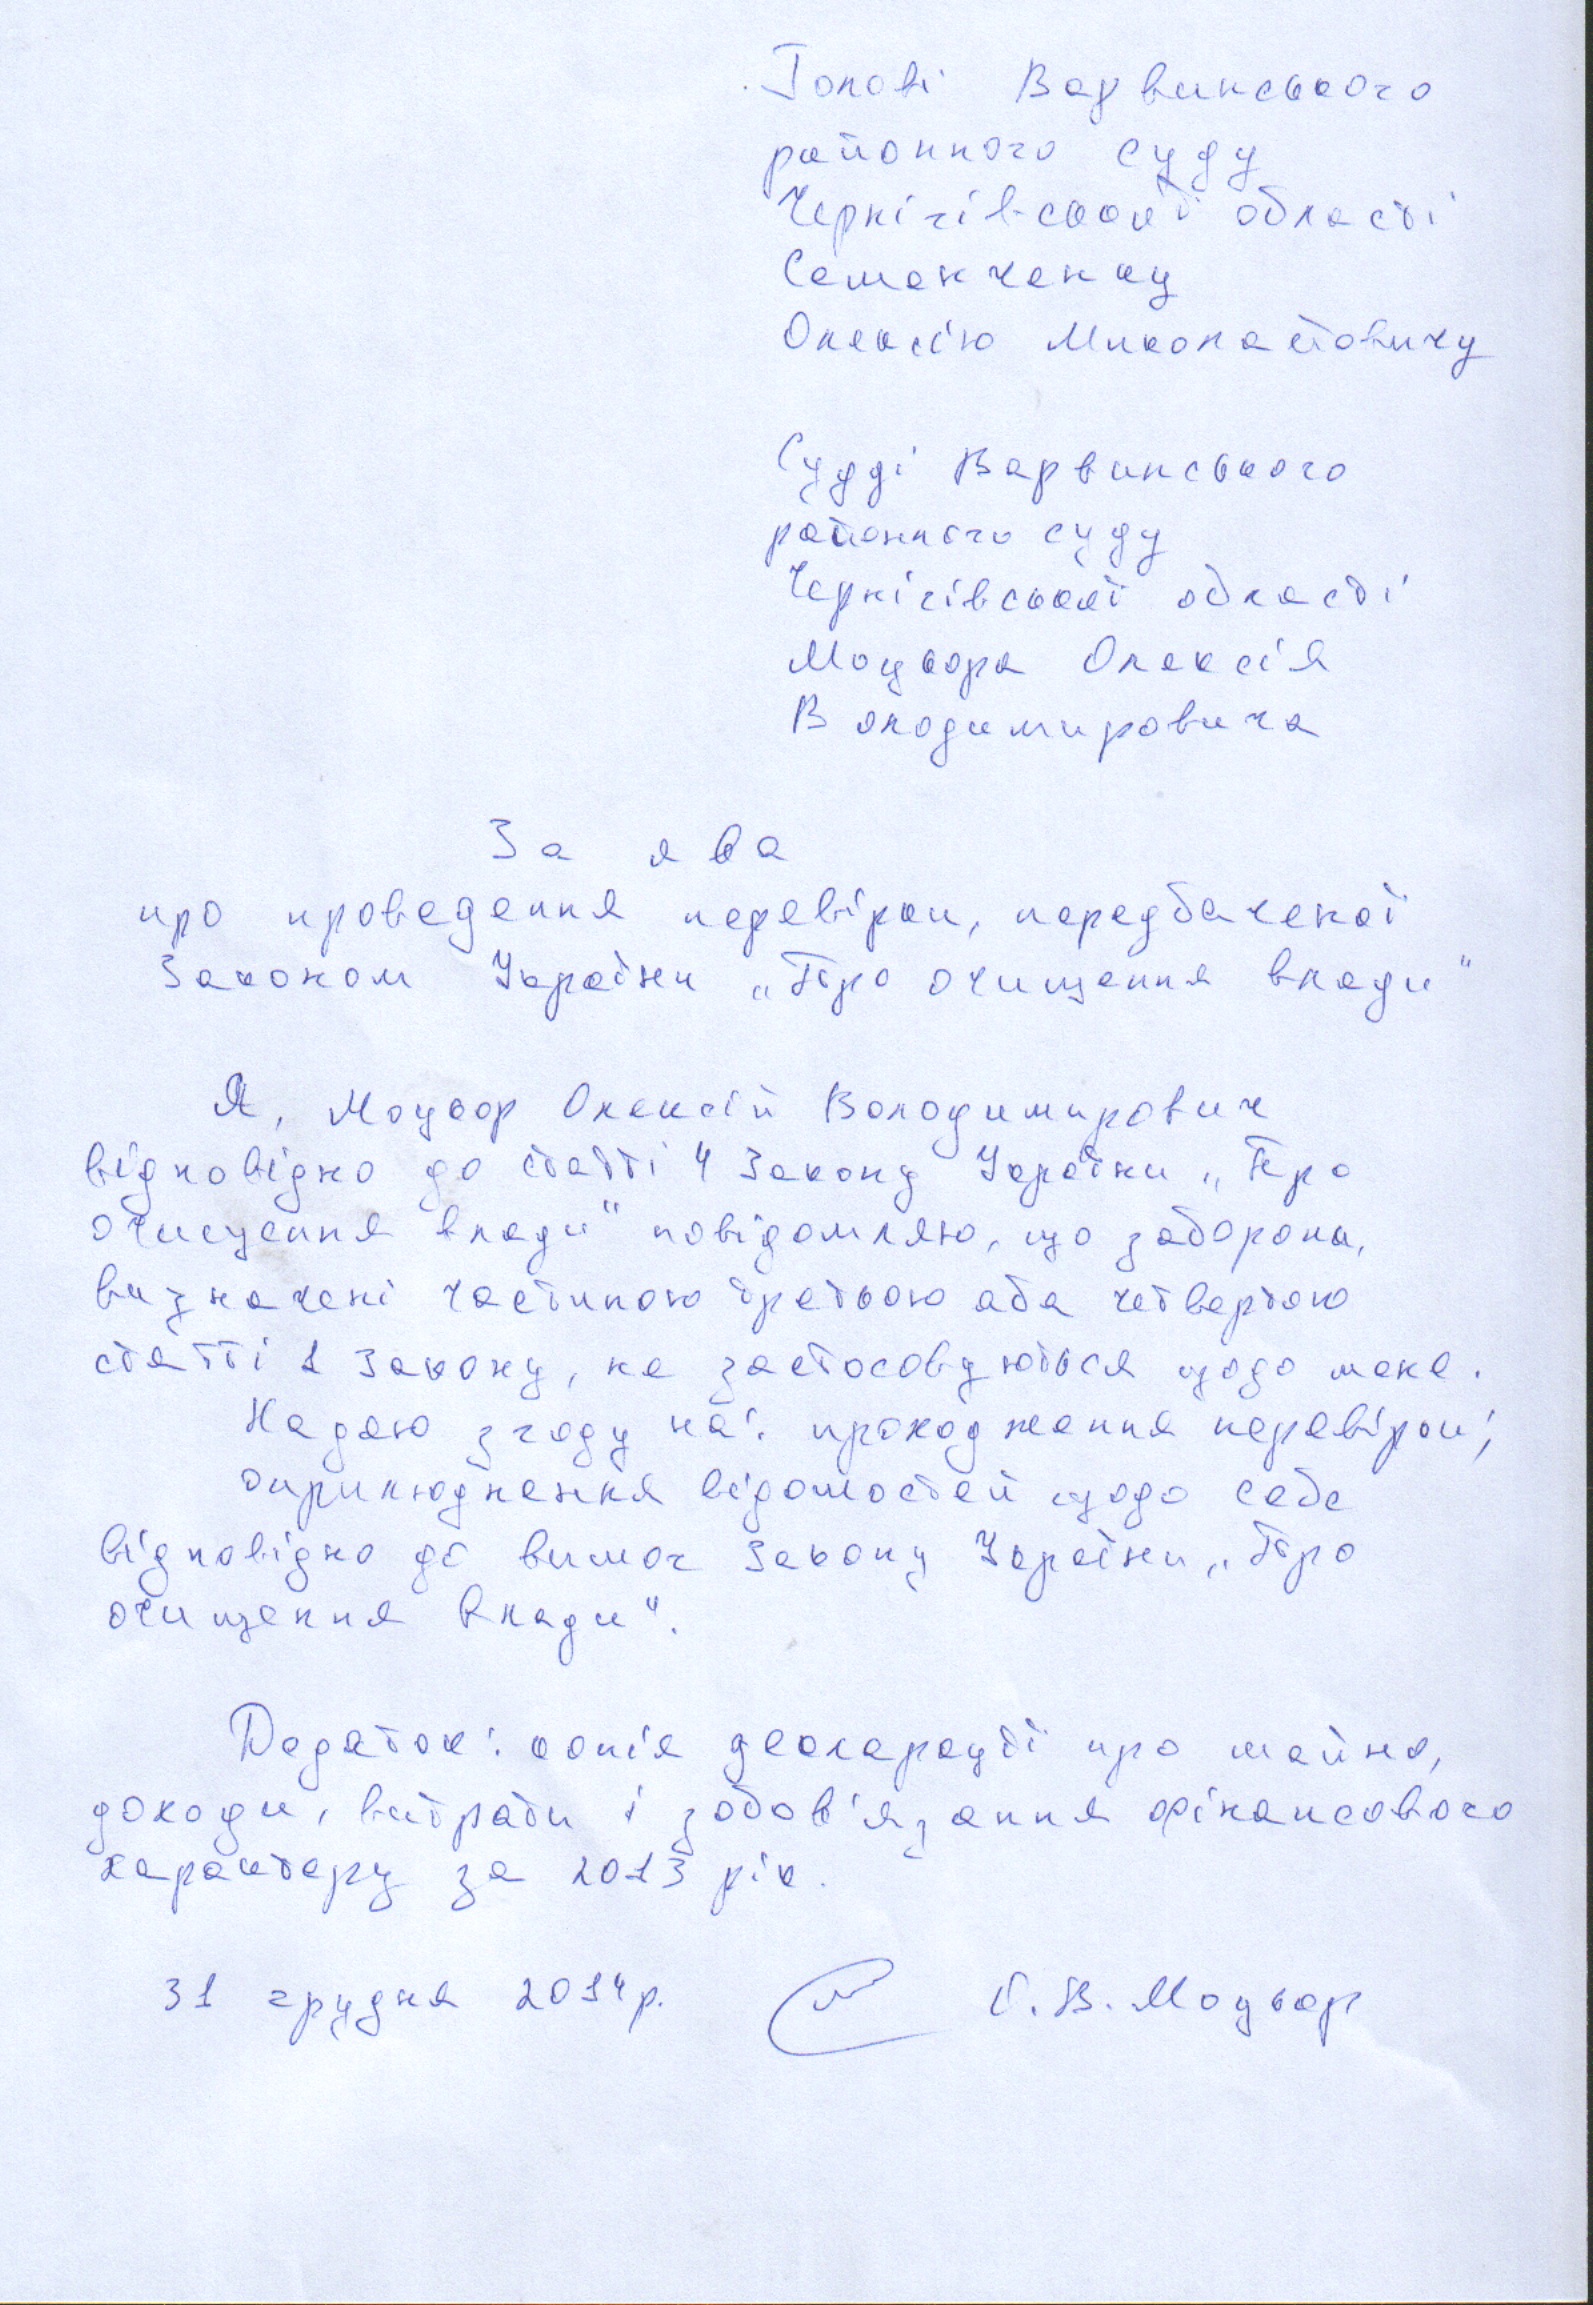 Голові Варвинського
районного суду
Чернігівської області
Семенченку
Олексію Миколайовичу
Судді Варвинського
районного суду
Чернігівської області
Моцьора Олексія
Володимировича
Заява
про проведення перевірки, передбаченої
Законом України „Про очищення влади"
Я, Моцьор Олексій Володимирович
відповідно до статті 4 Закону України „Про
очищення влади" повідомляю, що заборони,
визначені частиною третьою або четвертою
статті 1 Закону, не застосовуються щодо мене.
Надаю згоду на: проходження перевірки;
оприлюднення відомостей щодо себе
відповідно до вимог Закону України „Про
очищення влади".
Додаток: копія декларації про майно,
доходи, витрати і зобов'язання фінансового
характеру за 2013 рік.
31 грудня 2014р. О.В. Моцьор